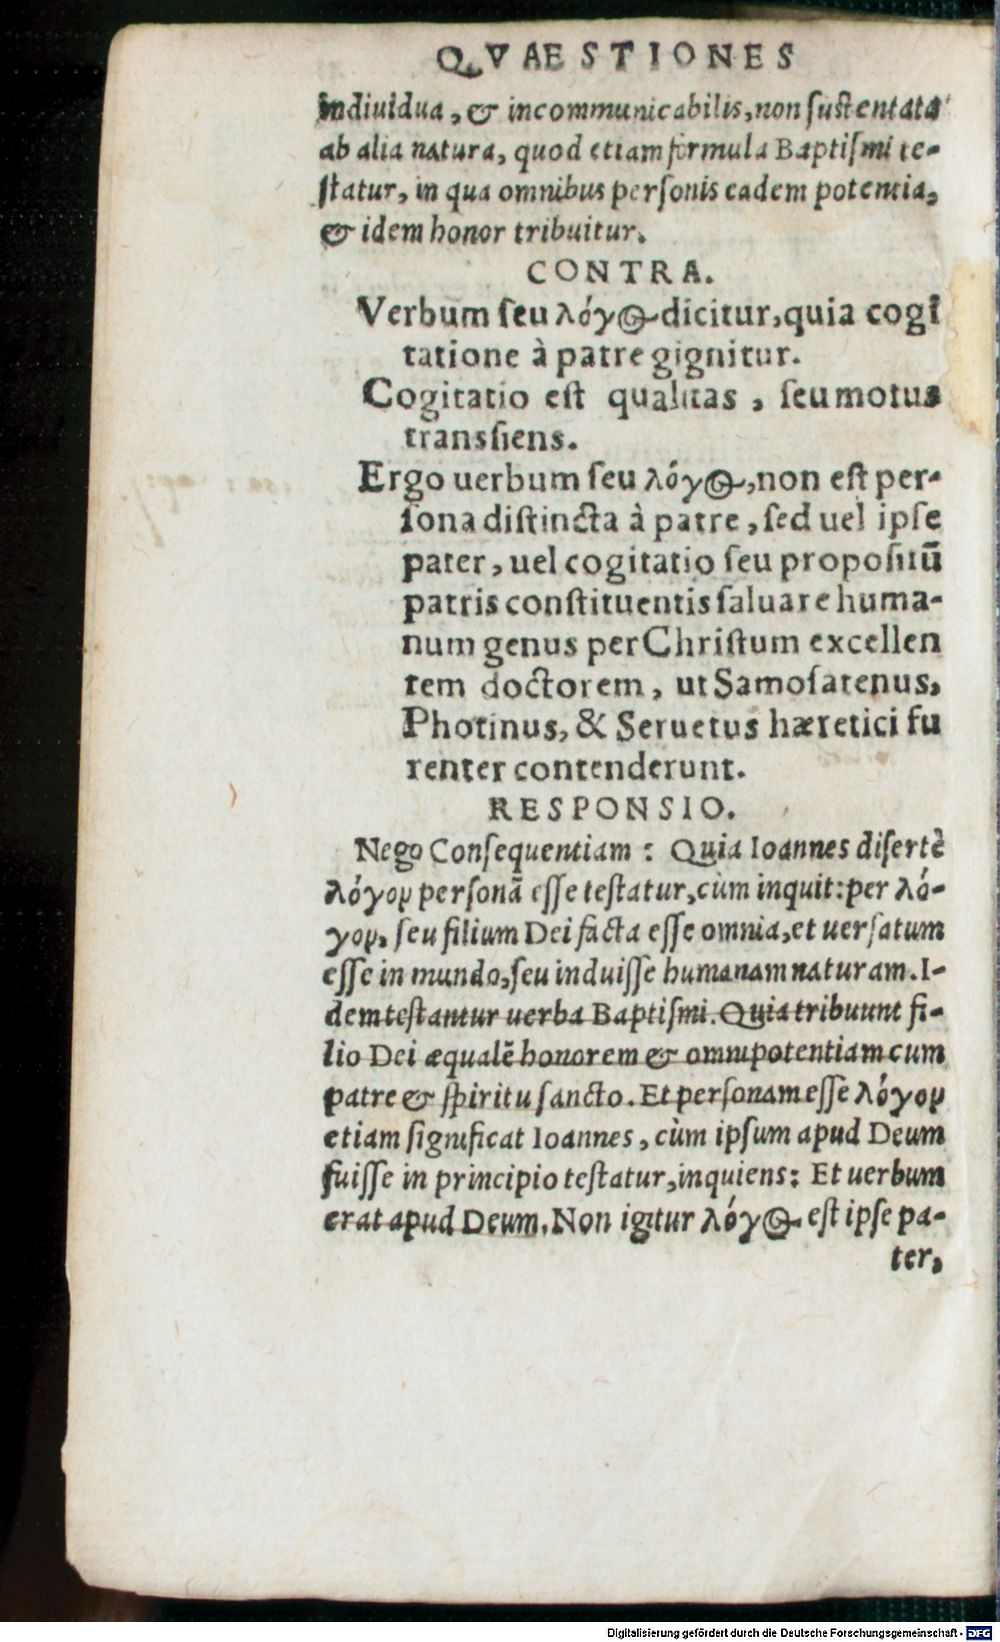 QVAESTIONES
indiuidua, & incommunicabilis, non sustentata
ab alia natura, quod etiam formula Baptismi te-
statur, in qua omnibus personis eadem potentia,
& idem honor tribuitur.
CONTRA.
Verbum seu λόγος dicitur, quia cogi
tatione à patre gignitur.
Cogitatio est qualitas, seu motus
transsiens.
Ergo uerbum seu λόγος, non est per-
sona distincta à patre, sed uel ipse
pater, uel cogitatio seu propositū
patris constituentis saluare huma-
num genus per Christum excellen
tem doctorem, ut Samosatenus,
Photinus, & Seruetus hæretici fu
renter contenderunt.
RESPONSIO.
Nego Consequentiam: Quia Ioannes disertè
λόγον personā esse testatur, cùm inquit: per λό-
γον, seu filium Dei facta esse omnia, et uersatum
esse in mundo, seu induisse humanam naturam. I-
dem testantur uerba Baptismi. Quia tribuunt fi-
lio Dei æqualē honorem & omnipotentiam cum
patre & spiritu sancto. Et personam esse λόγον
etiam significat Ioannes, cùm ipsum apud Deum
fuisse in principio testatur, inquiens: Et uerbum
erat apud Deum. Non igitur λόγος est ipse pa-
ter,
Digitalisierung gefördert durch die Deutsche Forschungsgemeinschaft - DFG